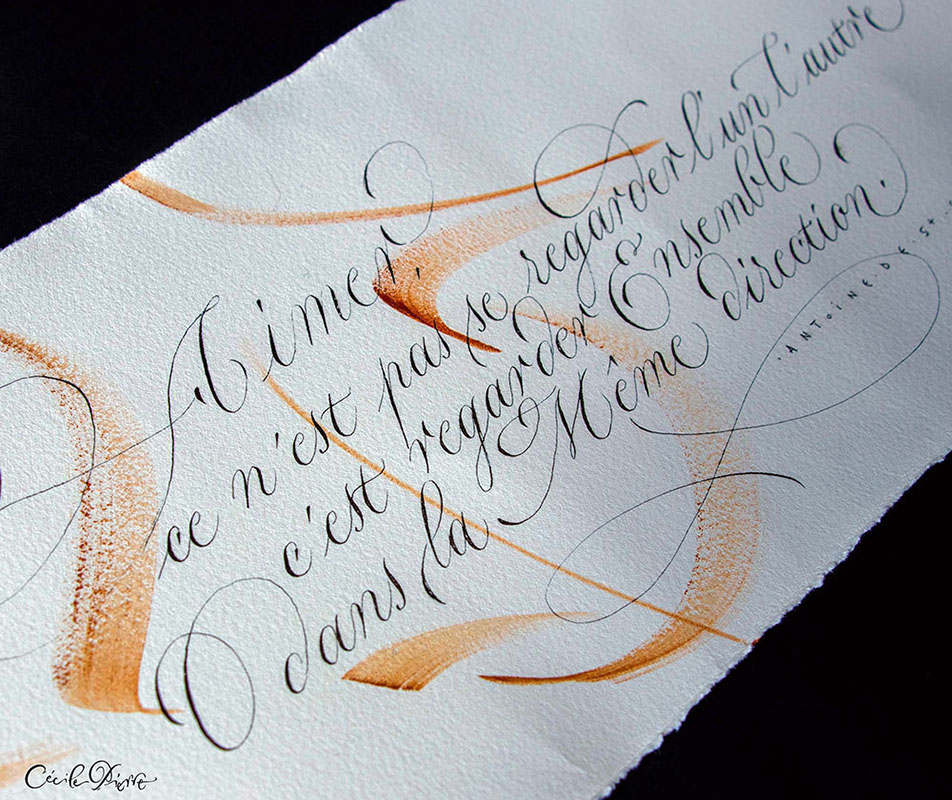 Aimer,
ce n'est pas se regarder l'un l'autre
c'est regarder Ensemble
dans la Même direction.
·ANTOINE·DE·St
Cécile Pierre